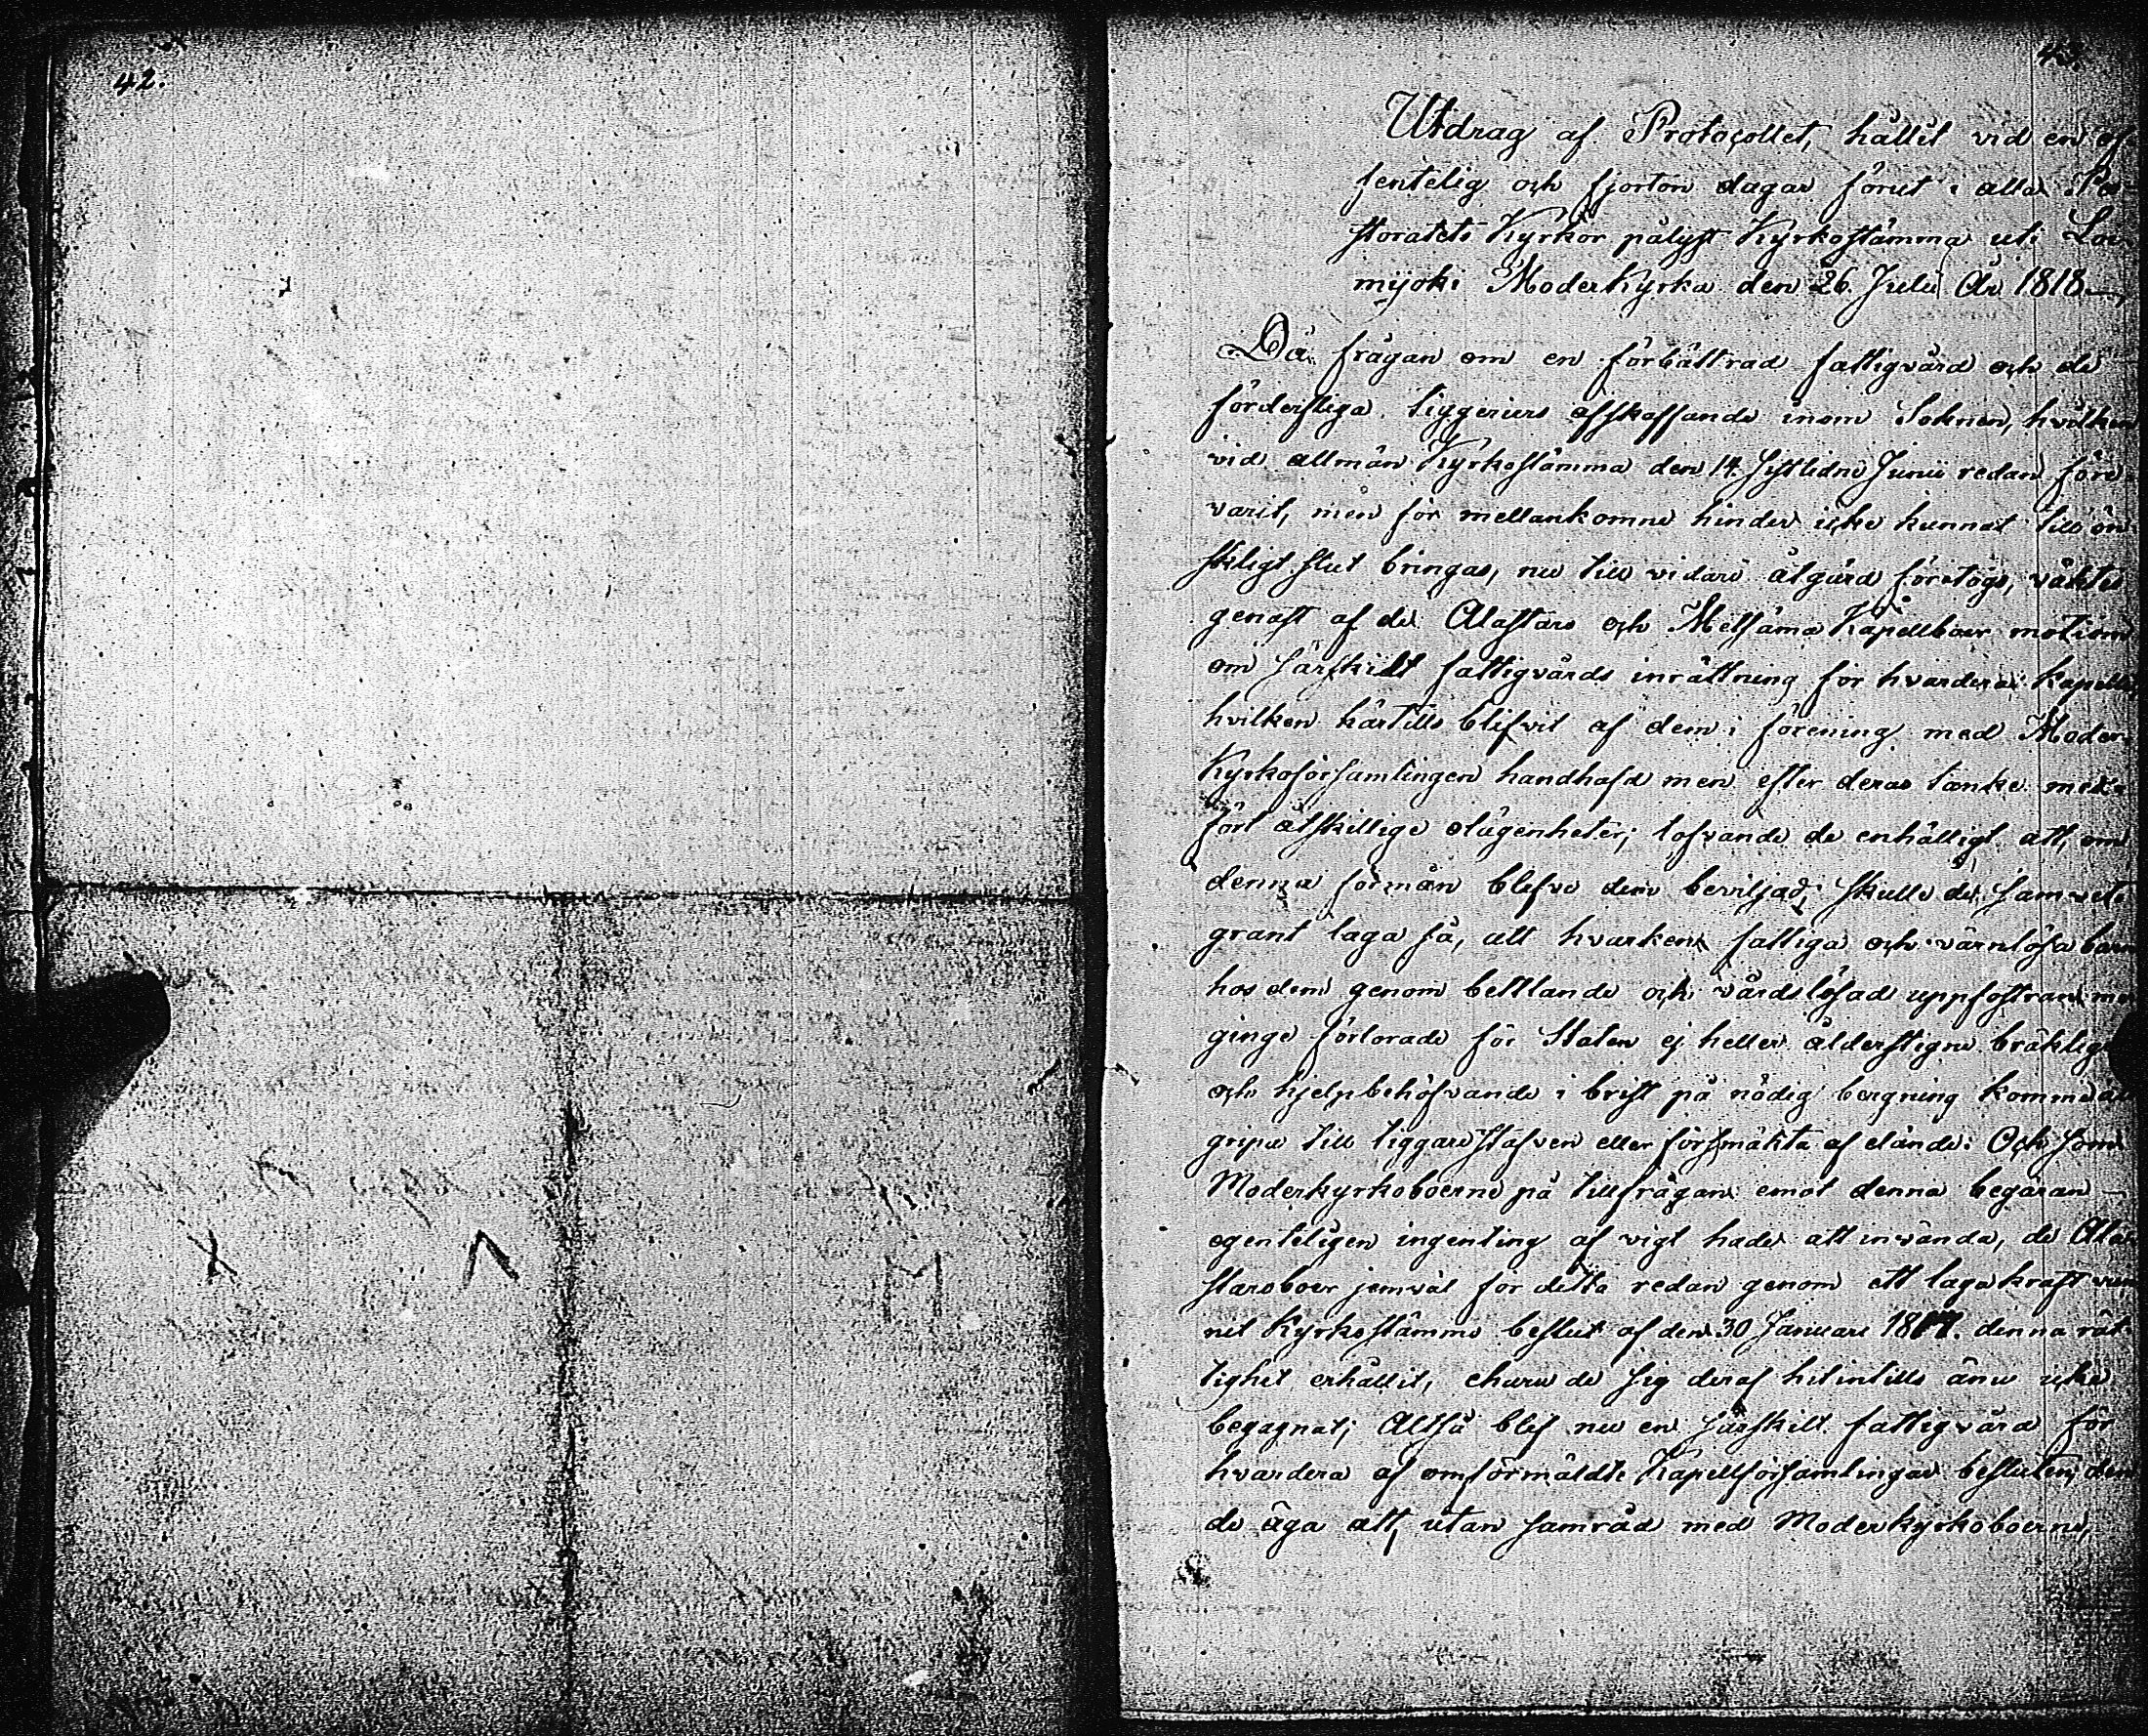 42.
43.
Utdrag af Protocollet, hållit vid en of-
fentelig och fjorton dagar förut i alla Pa-
storatets Kyrkor pålyst Kyrkostämma uti Loi-
mijoki Moderkyrka den 26. Julii År 1818.
Då frågan om en förbättrad fattigvård och de
förderfliga tiggeriers afskaffande inom Soknen, hvilken
vid allmän Kyrkostämma den 14. sistlidne Junii redan före
varit, men för mellankomne hinder icke kunnat till ön-
skligt slut bringas, nu till vidare åtgärd företogs, väktes
genast af de Alastaro och Metsämä Kapellboer motion
om särskilt fattigvårds inrättning för hvardera Kapellet,
hvilken härtills blifvit af dem i förening med Moder-
Kyrkoförsamlingen handhafd men efter deras tanke med-
fört åtskillige olägenheter; lofvande de enhälligt att, om
denna förmån blefve dem beviljad, skulle de samvets-
grant laga så, att hvarken fattiga och värnlösa barn
hos dem genom bettlande och vårdslösad uppfostran
ginge förlorade för Staten ej heller ålderstigne bräklige
och hjelpbehöfvande i brist på nödig bergning komme att
gripa till tiggare stafven eller försmäkta af elände: Och som
Moderkyrkoboerne på tillfrågan emot denna begäran
egenteligen ingenting af vigt hade att invända, de Ala-
staroboer jemväl för detta redan genom ett laga kraft vun-
nit Kyrkostämmo beslut af den 30 Januari 1817. denna rät-
tighet erhållit, ehuru de sig deraf hitintills ännu icke
begagnat; Altså blef nu en särskilt fattigvård för
hvardera af omförmäldte Kapellförsamlingar besluten, den
de äga att, utan samråd med Moderkyrkoboerne,